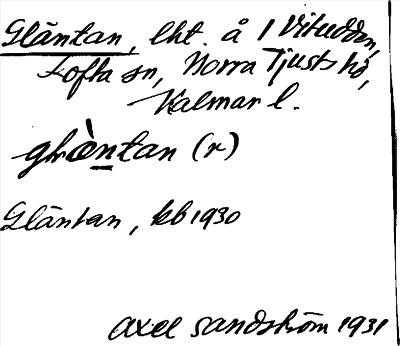 Gläntan, lht. å 1 Vituddan,
Lofta sn, Norra Tjusts hd,
Kalmar l.
glæ̀ntan (r)
Gläntan, kb 1930
Axel Sandström 1931